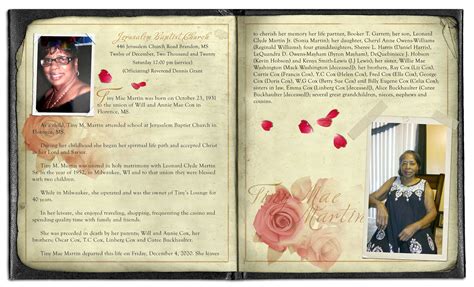 Jerusalem Baptist Church
446 Jerusalem Church Road Brandon, MS
Twelve of December, Two Thousand and Twenty
Saturday 12:00 pm (service)
(Officiating) Reverend Dennis Grant
Tiny Mae Martin was born on October 23, 1931
to the union of Will and Annie Mae Cox in
Florence, MS.
As a child, Tiny M. Martin attended school at Jerusalem Baptist Church in
Florence, MS.
During her childhood she began her spiritual life path and accepted Christ
as her Lord and Savior.
Tiny M. Martin was united in holy matrimony with Leonard Clyde Martin
Sr. in the year of 1952, in Milwaukee, WI and to that union they were blessed
with two children.
While in Milwaukee, she operated and was the owner of Tiny's Lounge for
40 years.
In her leisure, she enjoyed traveling, shopping, frequenting the casino and
spending quality time with family and friends.
She was preceded in death by her parents; Will and Annie Cox, her
brothers: Oscar Cox, T.C Cox, Linberg Cox and Cutee Buckhaulter.
Tiny Mae Martin departed this life on Friday, December 4, 2020. She leaves
to cherish her memory her life partner, Booker T. Garrett; her son, Leonard
Clyde Martin Jr. (Sonia Martin); her daughter, Cheryl Anne Owens-Williams
(Reginald Williams); four granddaughters, Sheree L. Harris (Daniel Harris),
LaQuandra D. Owens (Kenny Owens), DeJacqulane I. Hobson
(Kevin Hobson) and Kenya Smith (Lewis); her sister, Willie Mae
Washington (Mack Washington (deceased)), her brothers, Ray Cox (Lisa Cox),
Curtis Cox (Francis Cox), T.C Cox (Helen Cox), Fred Cox (Ella Cox), George
Cox (Doris Cox), W.G Cox (Berry Sue Cox) and Billy Eugene Cox (Gala Cox);
sisters in law, Emma Cox (Linberg Cox [deceased]), Alice Buckhaulter (Cutee
Buckhaulter [deceased]); several great grandchildren, nieces, nephews and
cousins.
Tiny Mae
Martin